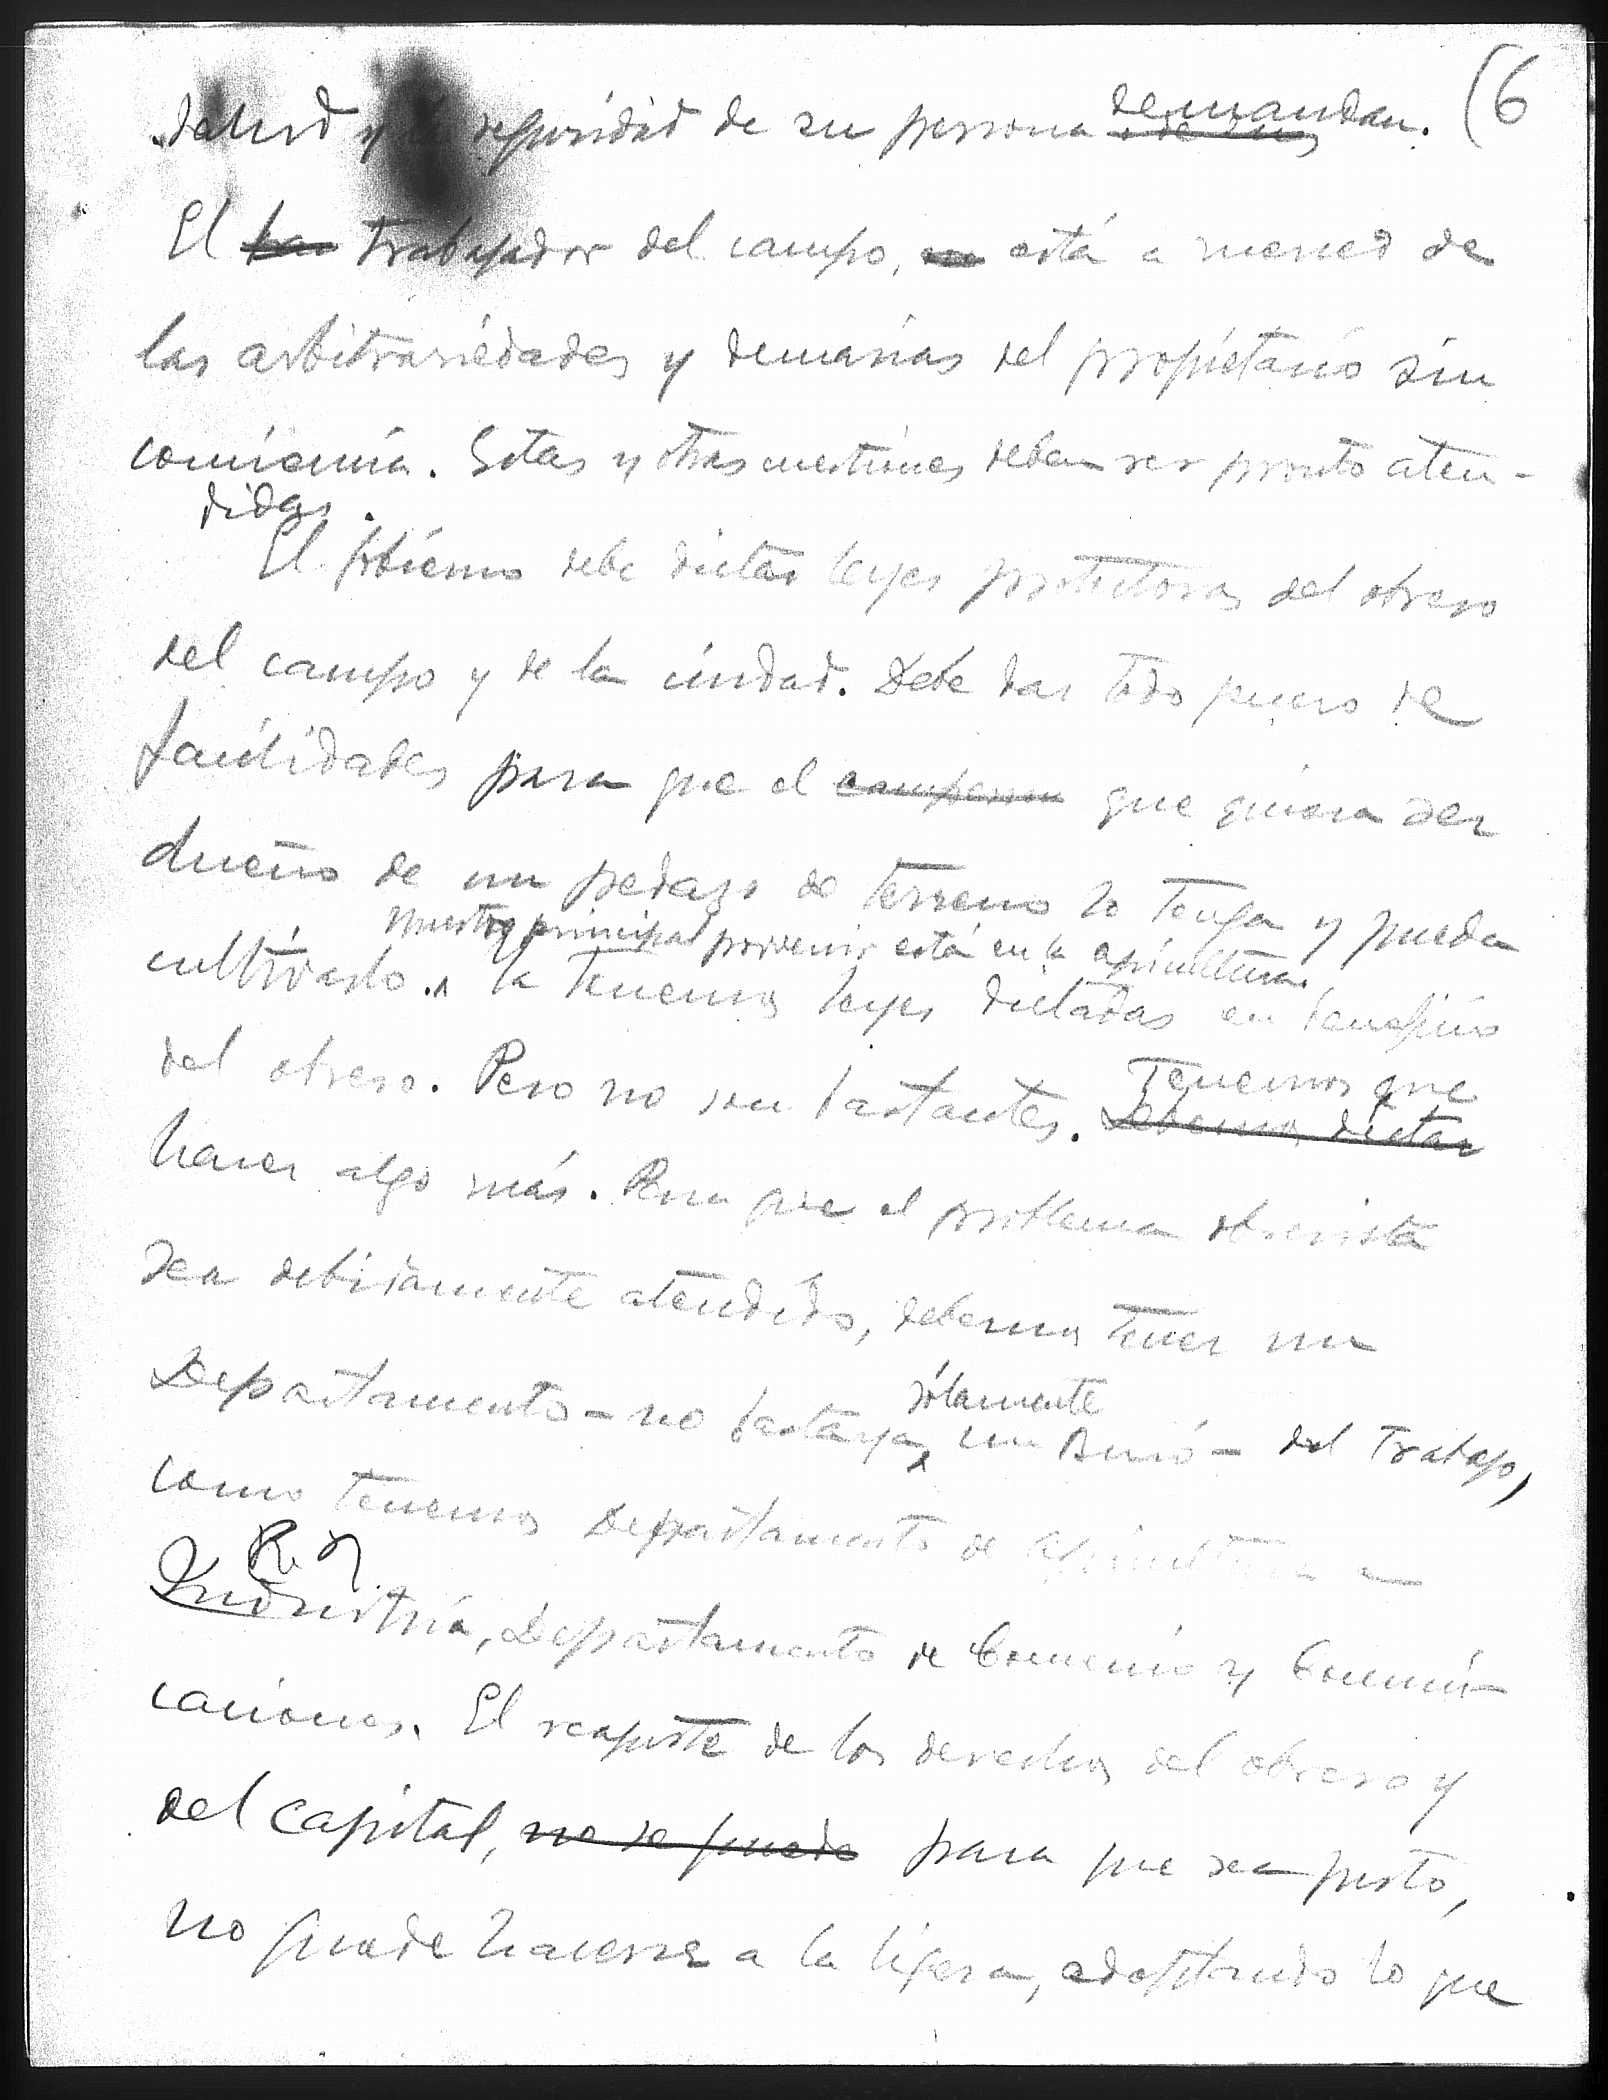 (6
salud y la seguridad de su persona demandan.
El trabajador del campo, está a merced de
las arbitrariedades y demasías del propietario sin
conciencia. Estas y otras cuestiones deben ser pronto aten-
didas.
El Gobierno debe dictar leyes protectoras del obrero
del campo y de la ciudad. Debe dar todo género de
facilidades para que el campesino que quiera ser
dueño de un pedazo de terreno lo tenga y pueda
Nuestro principal porvenir está en la agricultura.
cultivarlo. Ya tenemos leyes dictadas en beneficio
del obrero. Pero no son bastantes. Tenemos que
Debemos dictar
hacer algo más. Para que el problema obrerista
sea debidamente atendido, debemos tener un
Departamento - no bastaya solamente un Buró - del Trabajo,
como tenemos Departamento de Agricultura e
Industria, Departamento de Comercio y Comuni-
caciones. El reajuste de los derechos del obrero y
del capital, no se puede para que sea justo,
no puede hacerse a la ligera, adoptando lo que